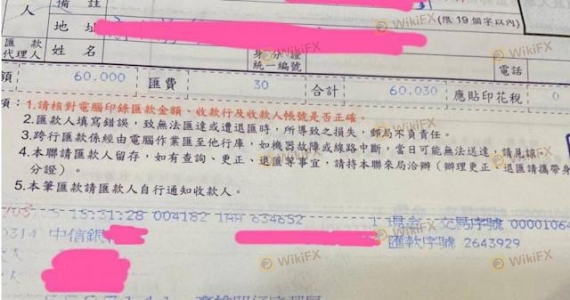 人 備註 (限19個字以內)
地址
匯款代理人 姓名 身分證統一編號 電話
額 60.000 匯費 30 合計 60.030 應貼印花稅 0
項：1.請核對電腦印錄匯款金額、收款行及收款人帳號是否正確。
2.匯款人填寫錯誤，致無法匯達或遭退匯時，所導致之損失，郵局不負責任。
3.跨行匯款係經由電腦作業匯至他行庫，如機器故障或線路中斷，當日可能無法送達，請見諒。
4.本聯請匯款人留存，如有查詢、更正、退匯等事宜，請持本聯來局洽辦（辦理更正、退匯請攜帶身
分證）。
5.本筆匯款請匯款人自行通知收款人。
15:31:28 004182 1AH 634652 1 現金 交易序號 00001064
0314 中信銀 匯款序號 2643929
WikiFX
WikiFX
WikiFX
WikiFX
WikiFX
WikiFX
WikiFX